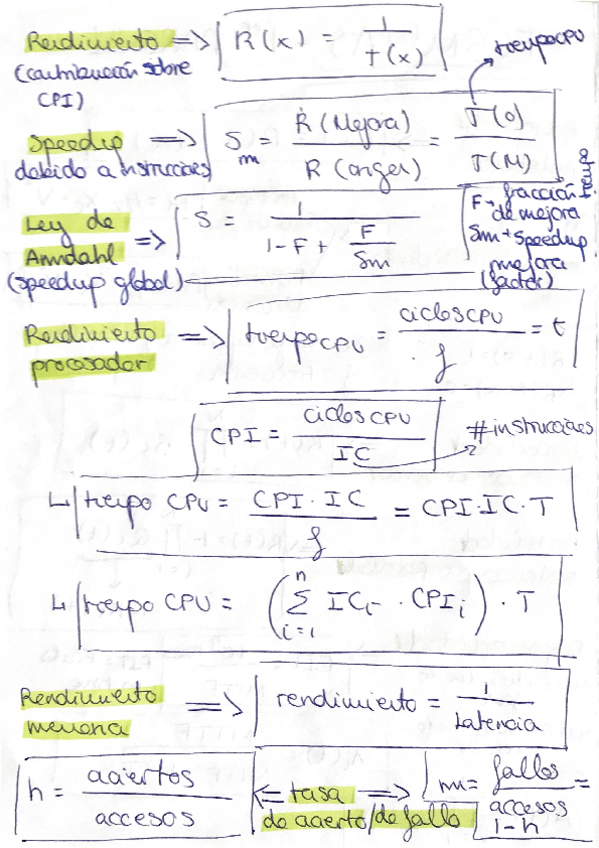 Rendimiento => R(x) = 1 / t(x)
(contribución sobre CPI)
tiempoCPU
Speedup => Sm = R(Mejora) / R(origen) = T(O) / T(M)
debido a instrucciones
Ley de Amdahl => S = 1 / (1 - F + F / Sm)
(speedup global)
F → fracción de mejora
Sm → Speedup mejora (factor)
Rendimiento procesador => tiempoCPU = ciclosCPU / f = t
CPI = ciclosCPU / IC → #instrucciones
↳ tiempo CPU = CPI · IC / f = CPI·IC·T
↳ tiempo CPU = (∑ i=1 n ICi · CPIi) · T
Rendimiento memoria => rendimiento = 1 / Latencia
h = aciertos / accesos <= tasa de acierto/de fallo => m = fallos / accesos = 1-h